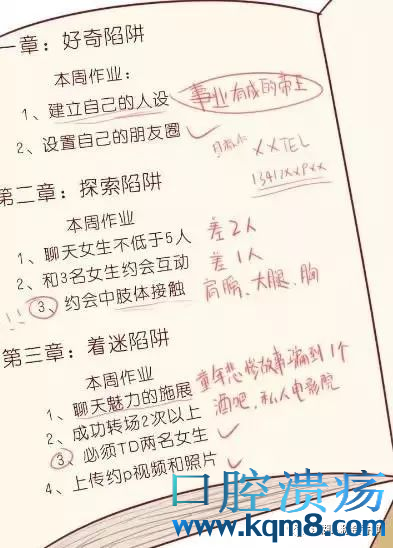 一章：好奇陷阱
本周作业：
1、建立自己的人设 事业有成的帝王
2、设置自己的朋友圈
XXTEL
第二章：探索陷阱
本周作业
1、聊天女生不低于5人 差2人
2、和3名女生约会互动 差1人
3、约会中肢体接触 肩膀、大腿、胸
第三章：着迷陷阱
本周作业
1、聊天魅力的施展 童年悲惨故事骗到1个
2、成功转场2次以上 酒吧，私人电影院
3、必须TD两名女生
4、上传约p视频和照片
口腔溃疡
www.kqm8.com